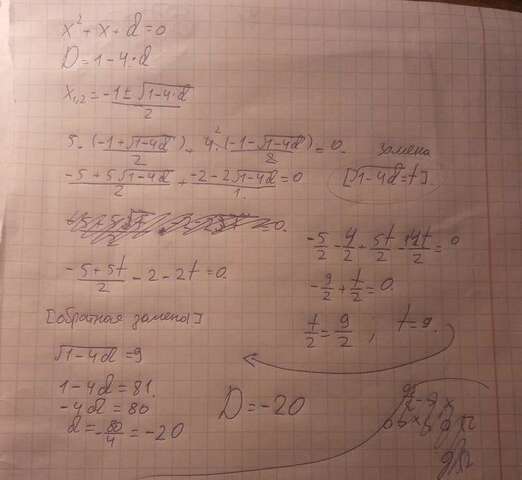 x² + x + d = 0
D = 1 - 4·d
x₁,₂ = (-1 ± √(1-4·d))/2
5·(-1+√(1-4d))/2 + 4²·(-1-√(1-4d))/2 = 0. замена
(-5+5√(1-4d))/2 + (-2-2√(1-4d))/1 = 0 [√(1-4d) = t]
= 0.
-5/2 - 4/2 + 5t/2 - 4t/2 = 0
(-5+5t)/2 - 2 - 2t = 0.
-9/2 + t/2 = 0.
[обратная замена]
t/2 = 9/2 , t = 9.
√(1-4d) = 9
1-4d = 81.
-4d = 80
D = -20
d = -80/4 = -20